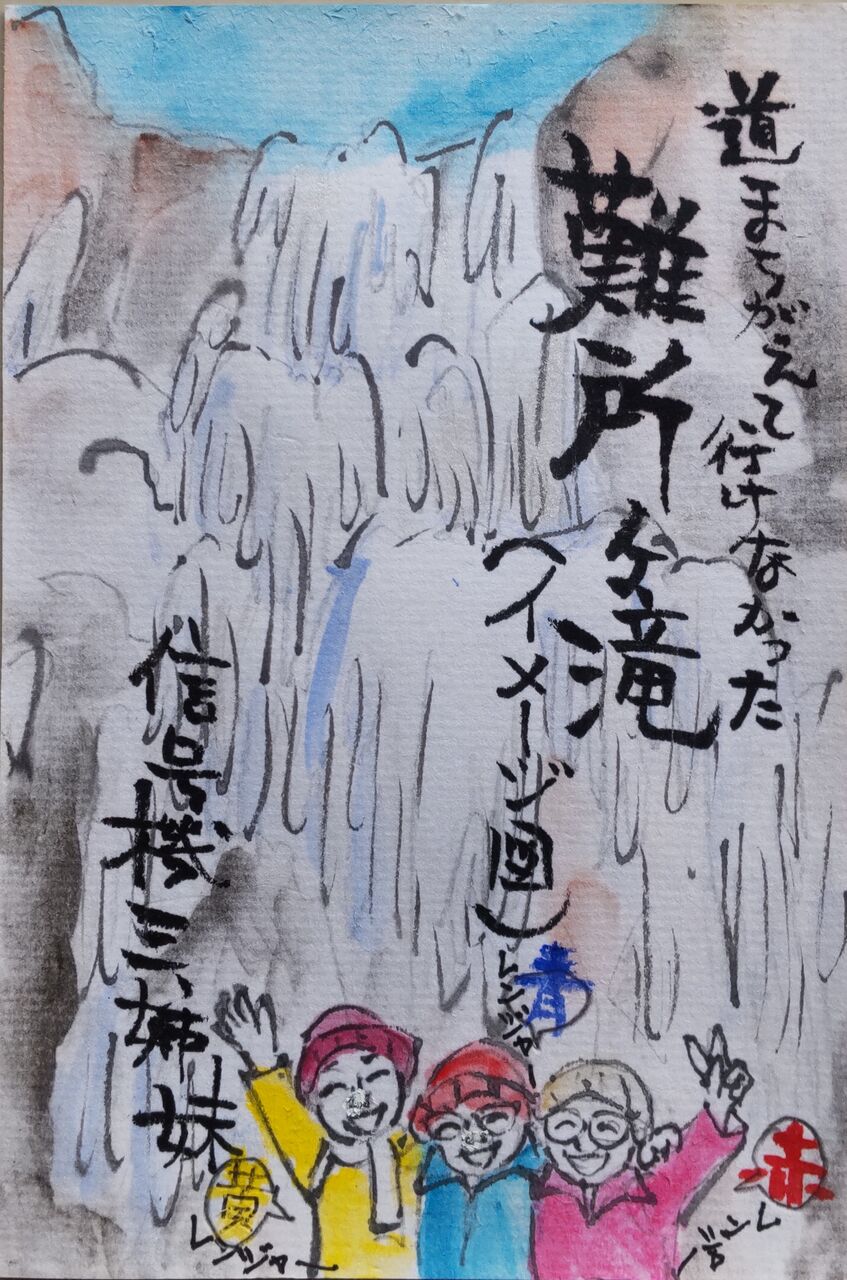 道まちがえて行けなかった
難所ヶ滝
(イメージ図)
信号機三姉妹
青
レンジャー
赤
レンジャー
黄
レンジャー